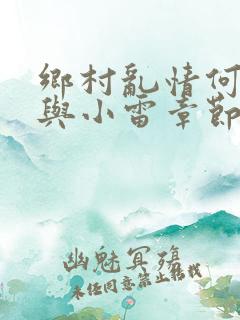 鄉村亂情何
與小雷章節
幽魅冥殤
未經同意禁止轉載